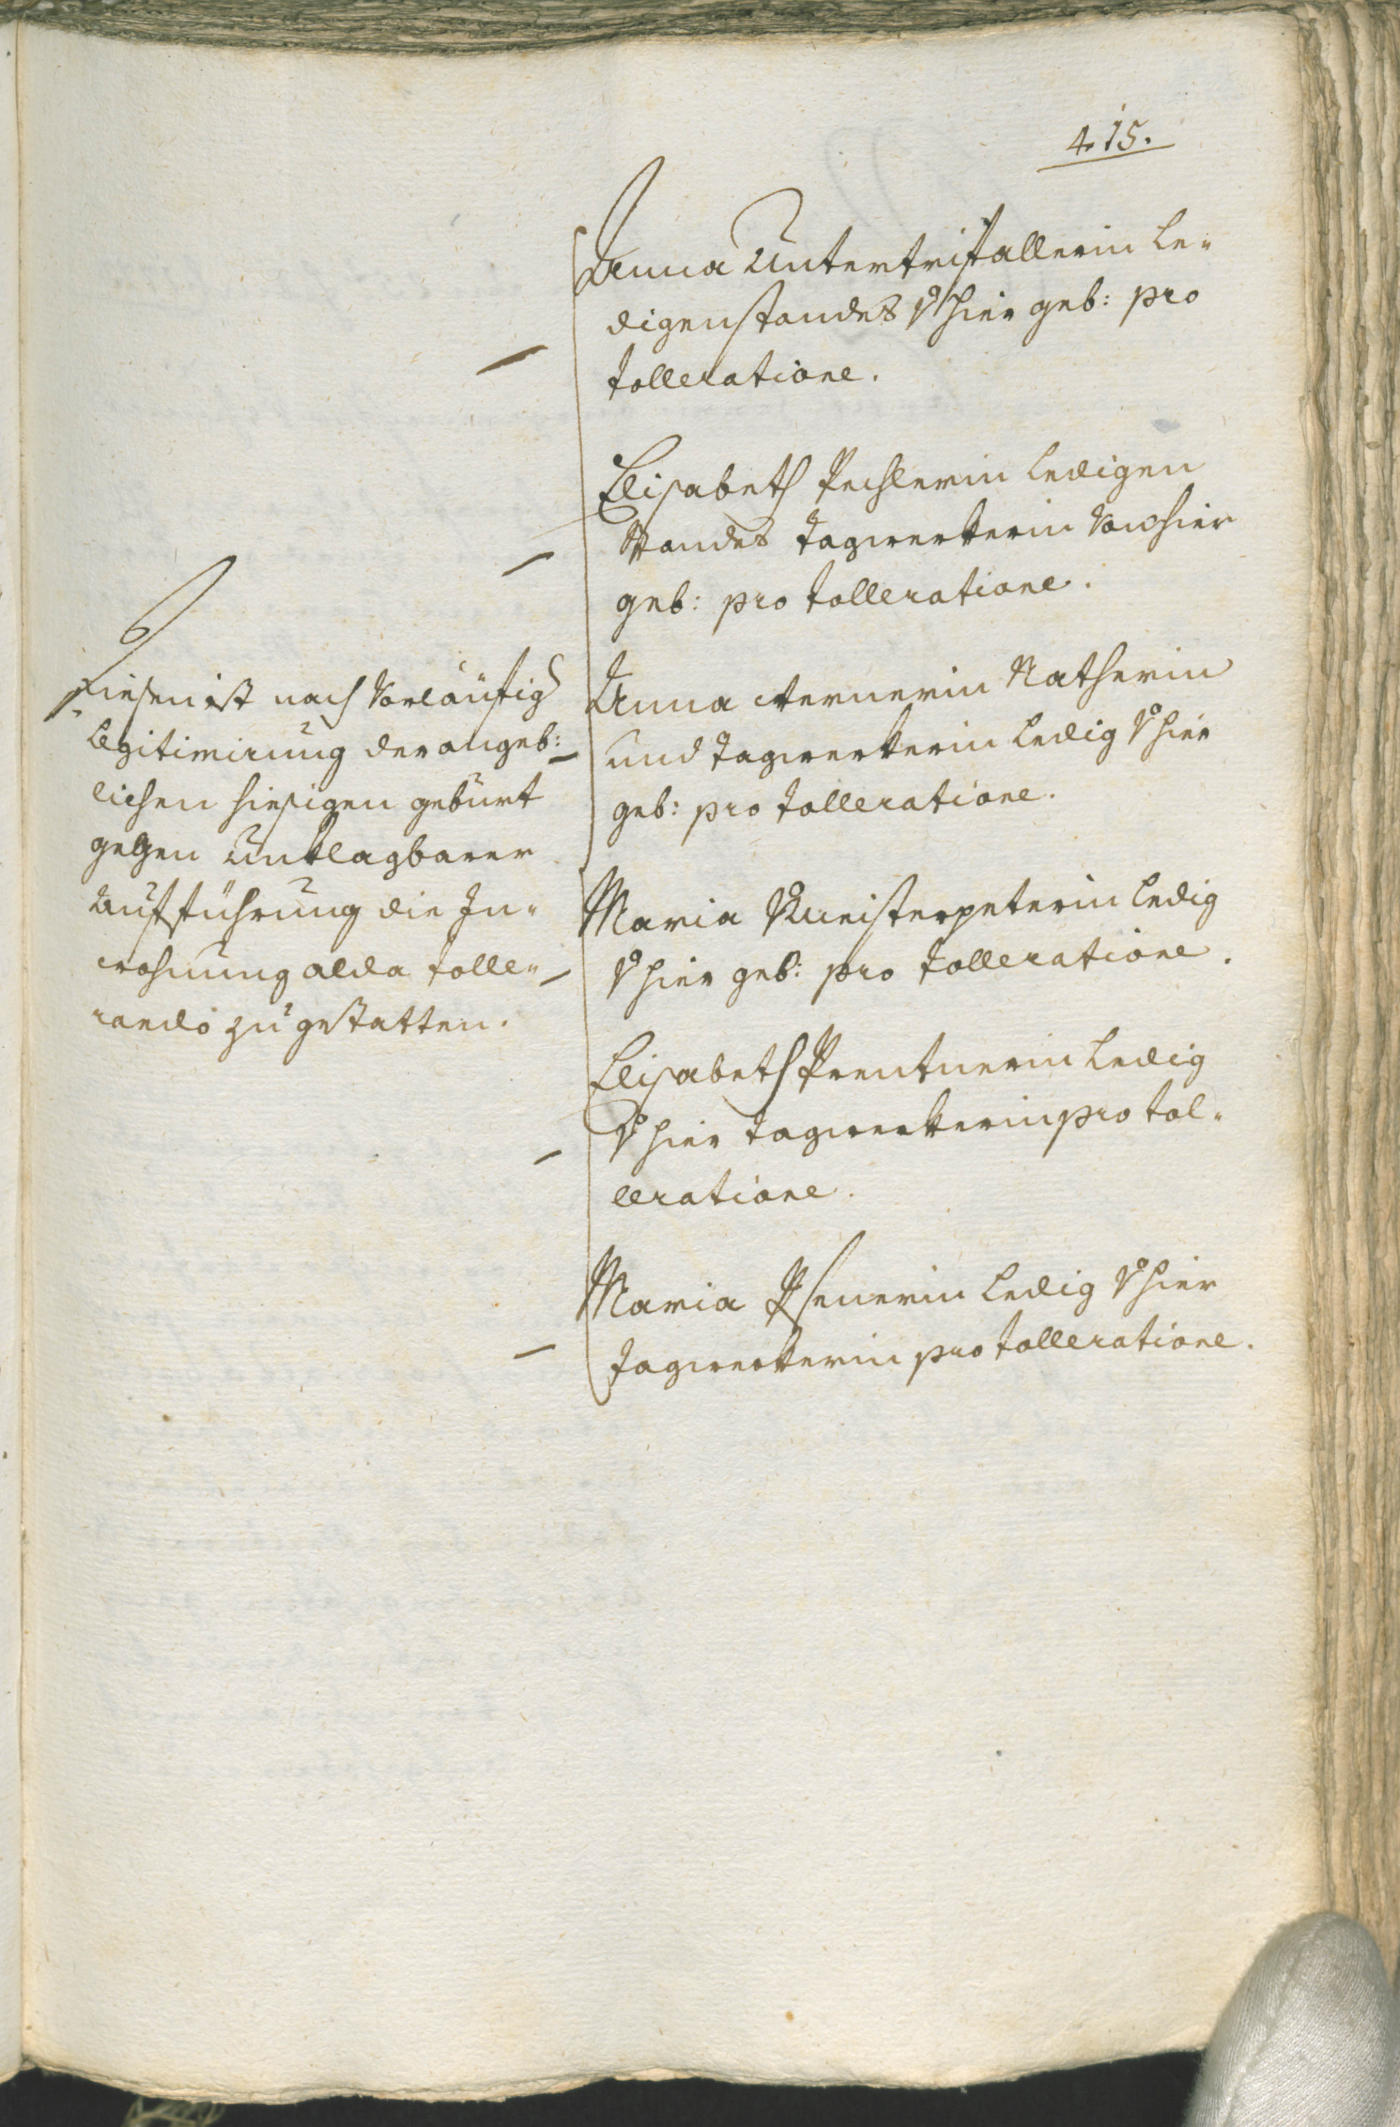 415.
Anna Untertrifallerin le-
digenstandes v hier geb: pro
tolleratione.
Elisabeth Pechlerin ledigen
Standes tagwerkerin von hier
geb: pro tolleratione.
Anna Avernerin Natherin
und tagwerkerin ledig v hier
geb: pro tolleratione.
Maria Kneisterpeterin ledig
v hier geb: pro tolleratione.
Elisabeth Prentnerin ledig
v hier tagwerkerin pro tol-
leratione.
Maria Psenerin ledig v hier
tagwerkerin pro tolleratione.
Diesen ist nach vorläufig
legitimirung der angeb:
lichen hiesigen geburt
gegen unklagbarer
Aufführung die In-
wohnung alda tolle-
rando zu gestatten.